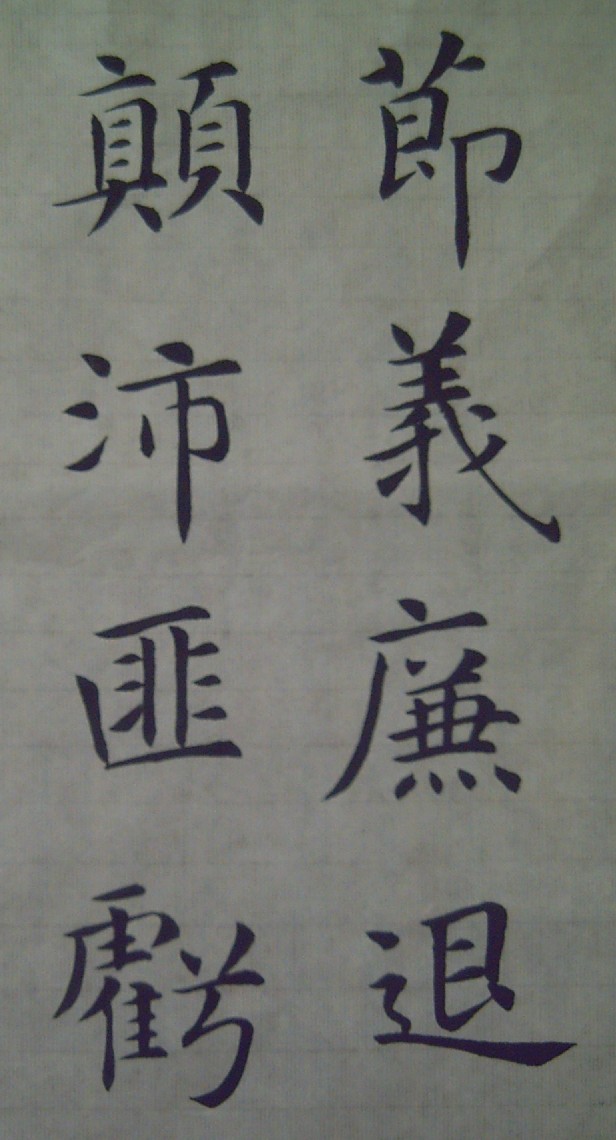 節義廉退
顛沛匪虧